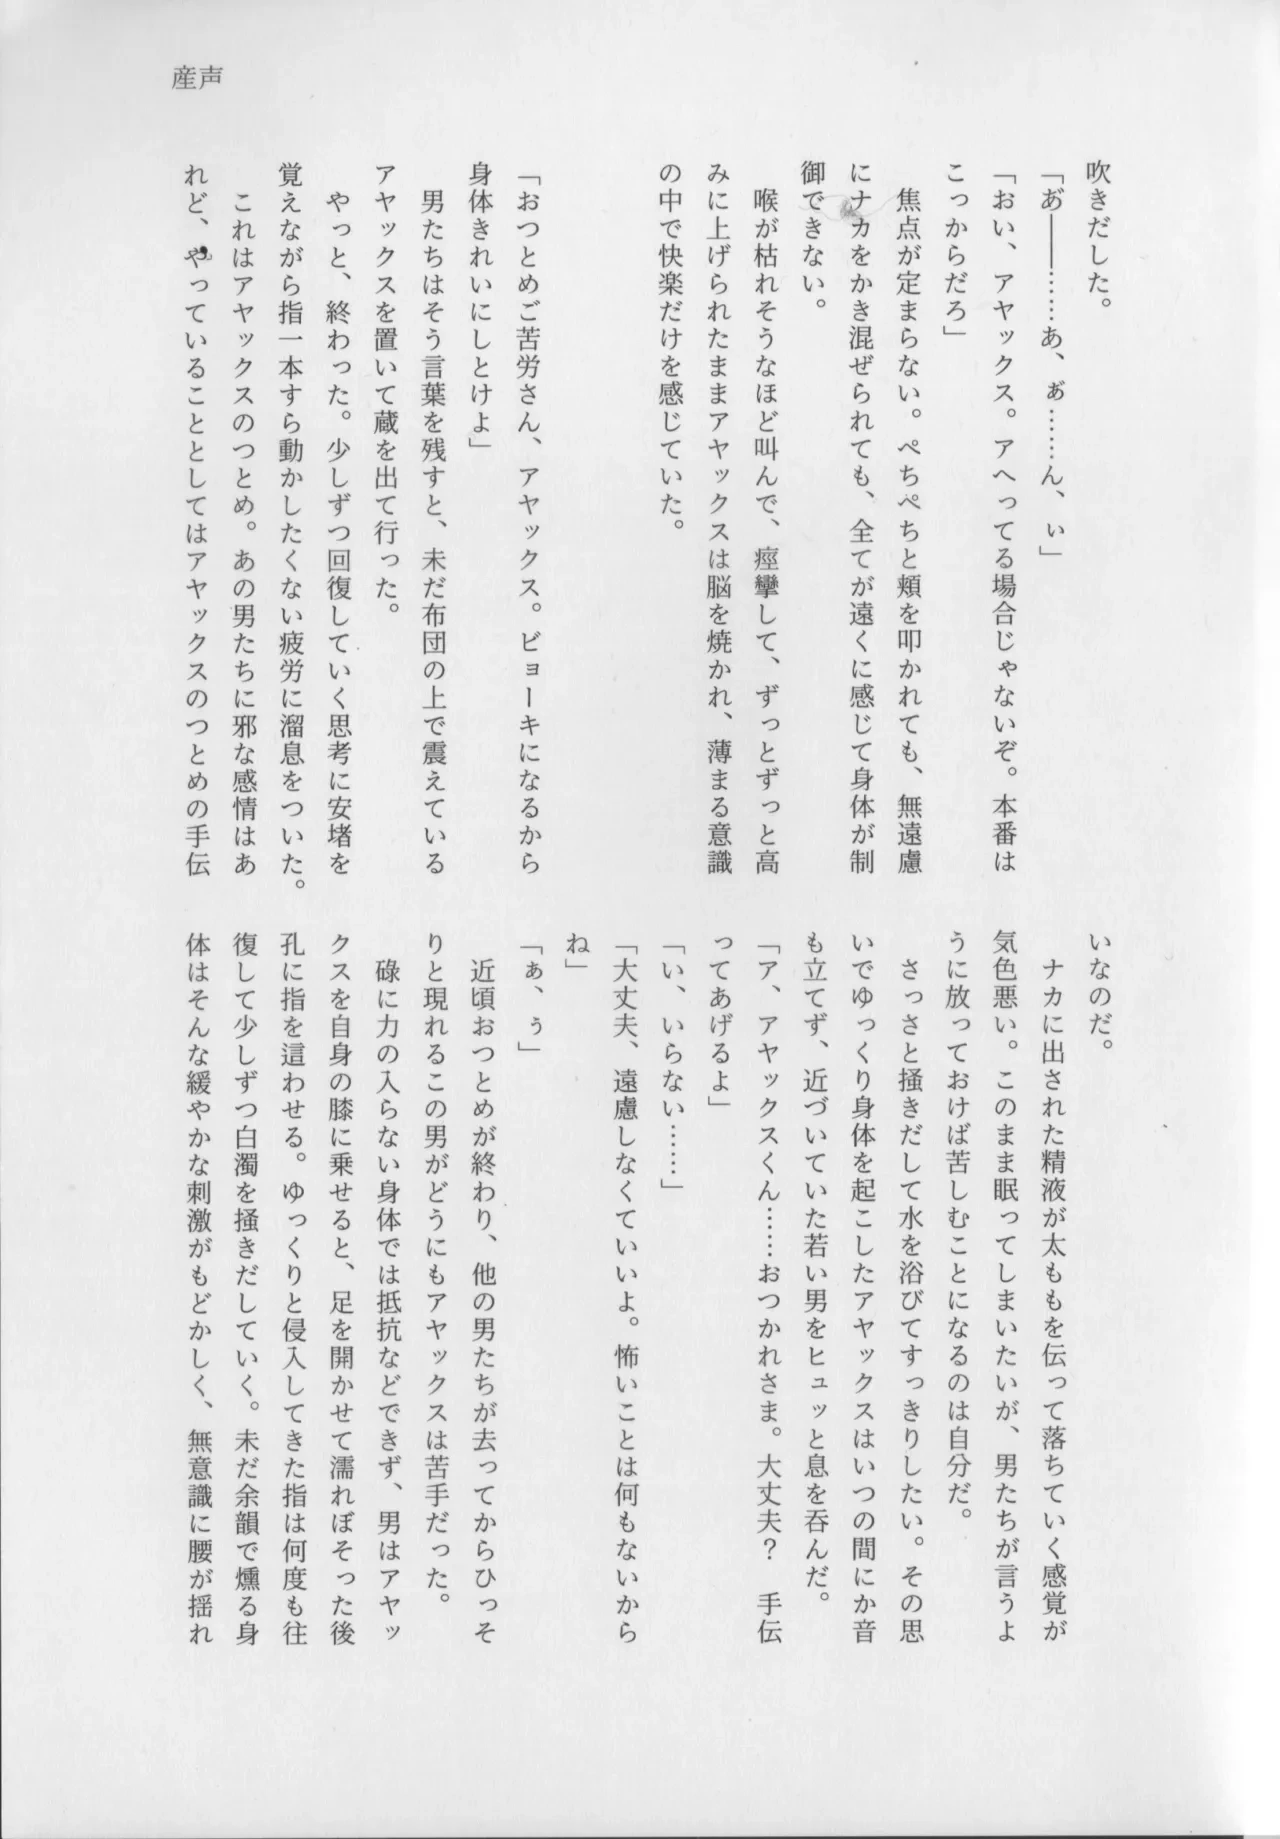 産声
吹きだした。
「あ゛――……あ、ぁ゛……ん、ぃ」
「おい、アヤックス。アヘってる場合じゃないぞ。本番は
こっからだろ」
　焦点が定まらない。ぺちぺちと頬を叩かれても、無遠慮
にナカをかき混ぜられても、全てが遠くに感じて身体が制
御できない。
　喉が枯れそうなほど叫んで、痙攣して、ずっとずっと高
みに上げられたままアヤックスは脳を焼かれ、薄まる意識
の中で快楽だけを感じていた。
「おつとめご苦労さん、アヤックス。ビョーキになるから
身体きれいにしとけよ」
　男たちはそう言葉を残すと、未だ布団の上で震えている
アヤックスを置いて蔵を出て行った。
　やっと、終わった。少しずつ回復していく思考に安堵を
覚えながら指一本すら動かしたくない疲労に溜息をついた。
　これはアヤックスのつとめ。あの男たちに邪な感情はあ
れど、やっていることとしてはアヤックスのつとめの手伝
いなのだ。
　ナカに出された精液が太ももを伝って落ちていく感覚が
気色悪い。このまま眠ってしまいたいが、男たちが言うよ
うに放っておけば苦しむことになるのは自分だ。
　さっさと掻きだして水を浴びてすっきりしたい。その思
いでゆっくり身体を起こしたアヤックスはいつの間にか音
も立てず、近づいていた若い男をヒュッと息を呑んだ。
「ア、アヤックスくん……おつかれさま。大丈夫？　手伝
ってあげるよ」
「い、いらない……」
「大丈夫、遠慮しなくていいよ。怖いことは何もないから
ね」
「ぁ、ぅ」
　近頃おつとめが終わり、他の男たちが去ってからひっそ
りと現れるこの男がどうにもアヤックスは苦手だった。
　碌に力の入らない身体では抵抗などできず、男はアヤッ
クスを自身の膝に乗せると、足を開かせて濡れぼそった後
孔に指を這わせる。ゆっくりと侵入してきた指は何度も往
復して少しずつ白濁を掻きだしていく。未だ余韻で燻る身
体はそんな緩やかな刺激がもどかしく、無意識に腰が揺れ